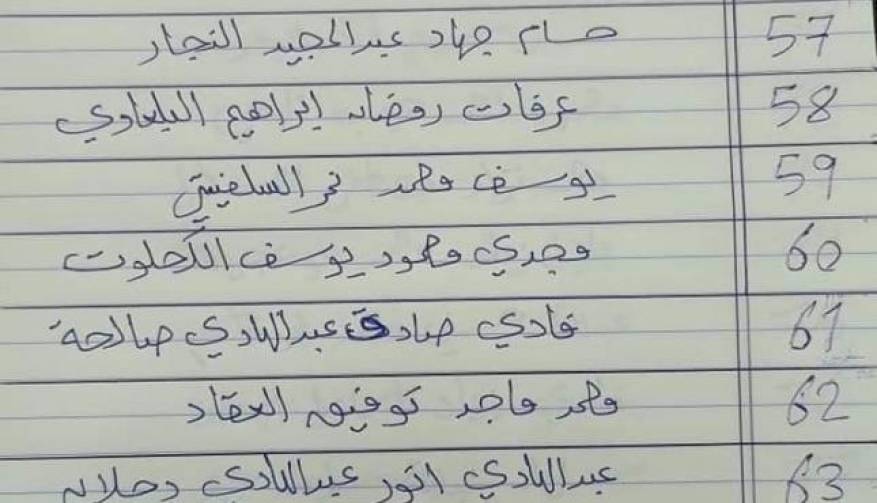 57 حسام جهاد عبدالمجيد النجار
58 عرفات رمضان ابراهيم البلعاوي
59 يوسف محمد نمر السلفيتي
60 مجدي محمود يوسف الكحلوت
61 فادي صادق عبدالهادي صالحة
62 محمد ماجد توفيق العقاد
63 عبدالهادي انور عبدالهادي دحلان